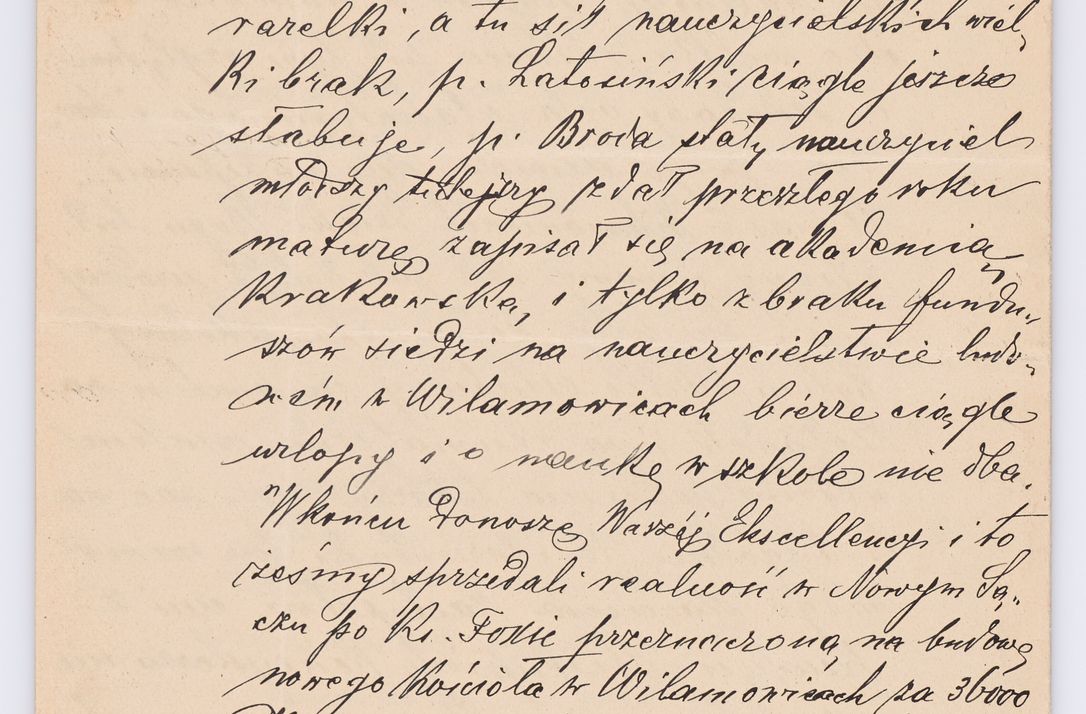 varelki, a tu sił nauczycielskich wiel„
ki brak, p. Latosiński ciągle jeszcze
słabuje, p. Broda stały nauczyciel
młodszy tutejszy zdał przeszłego roku
maturę zapisał się na akademią
Krakowską, i tylko z braku fundu„
szów siedzi na nauczycielstwie ludo„
wém w Wilamowicach bierze ciągle
urlopy i o naukę w szkole nie dba.
Wkońcu donoszę Waszéj Ekscellencyi i to
żeśmy sprzedali realność w Nowym Są„
czu po Ks. Foxie przeznaczoną na budowę
nowego Kościoła w Wilamowicach za 36000